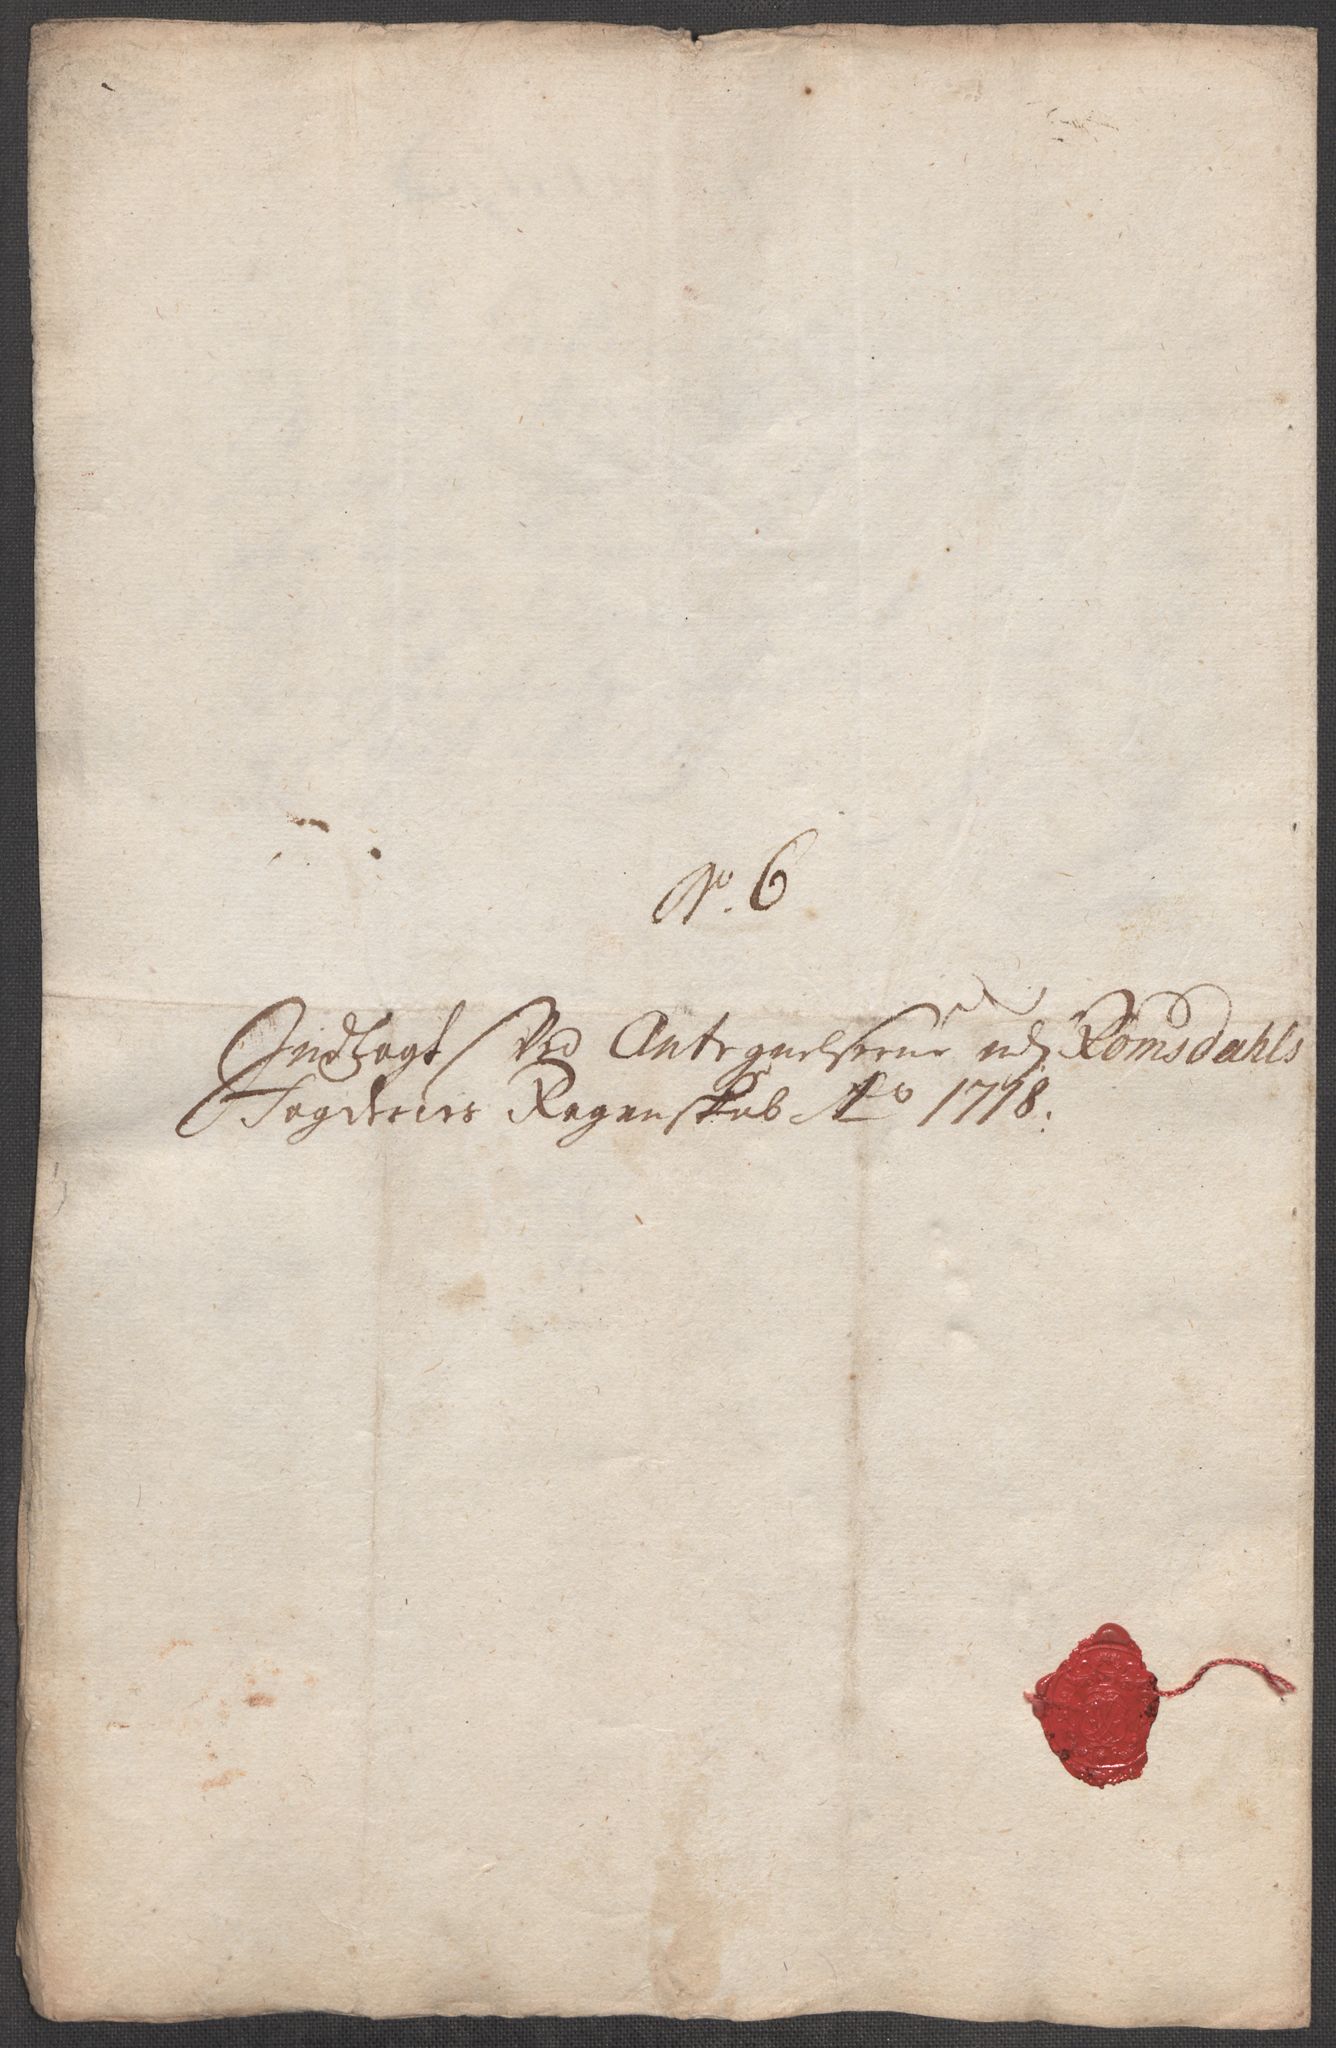 No. 6
Indlagt Ved Antegnelserne udj Romsdahls
Fogderies Regenskab Ao 1718.